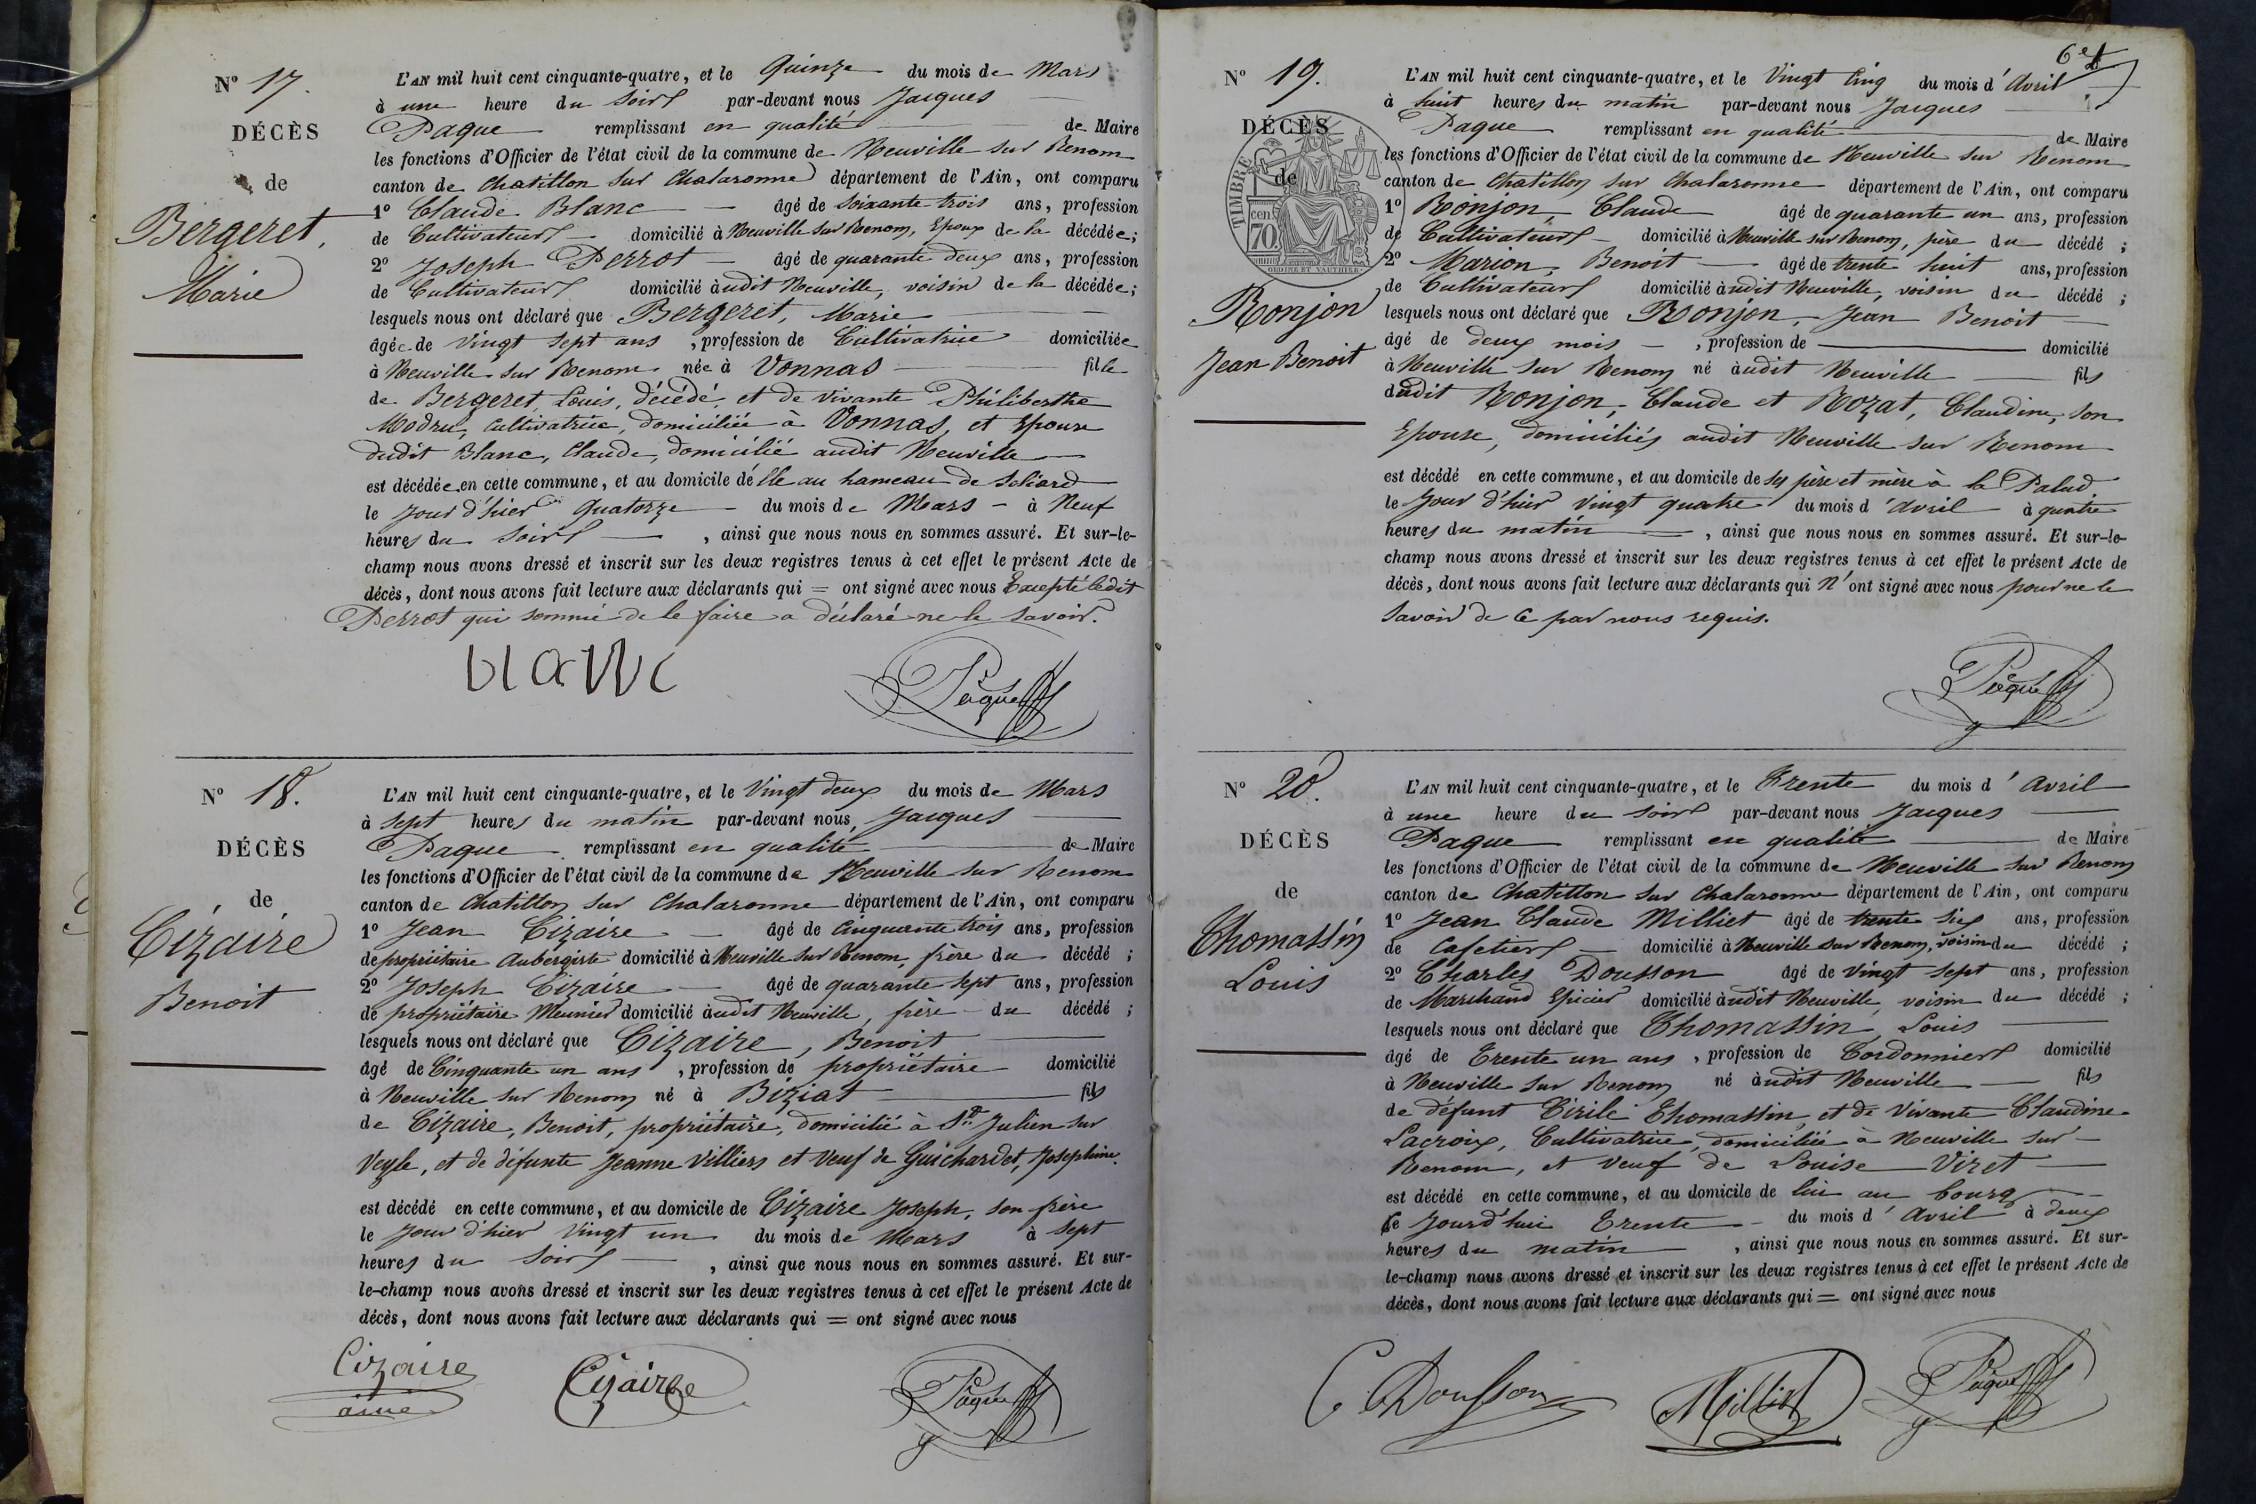 N° 17.
DÉCÈS
de
Bergeret,
Marie
L'AN mil huit cent cinquante-quatre, et le Quinze du mois de Mars
à une heure du Soir par-devant nous Jacques
Paque remplissant en qualité de Maire
les fonctions d'Officier de l'état civil de la commune de Neuville sur Renom
canton de Chatillon sur Chalaronne département de l'Ain, ont comparu
1° Claude Blanc âgé de soixante trois ans, profession
de Cultivateur domicilié à Neuville sur Renom, Epoux de la décédée;
2° Joseph Perrot âgé de quarante deux ans, profession
de Cultivateur domicilié audit Neuville, voisin de la décédée;
lesquels nous ont déclaré que Bergeret, Marie
âgée de vingt sept ans, profession de Cultivatrice domiciliée
à Neuville sur Renom née à Vonnas fille
de Bergeret Louis, décédé, et de vivante Philiberthe
Modru, Cultivatrice, domiciliée à Vonnas, et Epouse
dudit Blanc, Claude, domicilié audit Neuville
est décédée en cette commune, et au domicile d'elle au hameau de Soliard
le jour d'hier Quatorze du mois de Mars à Neuf
heures du Soir, ainsi que nous nous en sommes assuré. Et sur-le-
champ nous avons dressé et inscrit sur les deux registres tenus à cet effet le présent Acte de
décès, dont nous avons fait lecture aux déclarants qui = ont signé avec nous Excepté ledit
Perrot qui sommé de le faire a déclaré ne le savoir.
blanc
Pâque
N° 18.
DÉCÈS
de
Cizaire
Benoit
L'AN mil huit cent cinquante-quatre, et le Vingt deux du mois de Mars
à sept heures du matin par-devant nous, Jacques
Paque remplissant en qualité de Maire
les fonctions d'Officier de l'état civil de la commune de Neuville sur Renom
canton de Chatillon sur Chalaronne département de l'Ain, ont comparu
1° Jean Cizaire âgé de Cinquante trois ans, profession
de propriétaire Aubergiste domicilié à Neuville sur Renom, frère du décédé;
2° Joseph Cizaire âgé de quarante sept ans, profession
de propriétaire Meunier domicilié audit Neuville, frère du décédé;
lesquels nous ont déclaré que Cizaire, Benoit
âgé de Cinquante un ans, profession de propriétaire domicilié
à Neuville sur Renom né à Biziat fils
de Cizaire, Benoit, propriétaire, domicilié à St Julien sur
Veyle, et de défunte Jeanne Villiers et Veuf de Guichardet, Josephine.
est décédé en cette commune, et au domicile de Cizaire Joseph, son frère
le jour d'hier Vingt un du mois de Mars à sept
heures du Soir, ainsi que nous nous en sommes assuré. Et sur-
le-champ nous avons dressé et inscrit sur les deux registres tenus à cet effet le présent Acte de
décès, dont nous avons fait lecture aux déclarants qui = ont signé avec nous
Cizaire
ainé
Cizaire
Pâque
6e
N° 19.
DÉCÈS
de
TIMBRE
cen
70.
Ronjon
Jean Benoit
L'AN mil huit cent cinquante-quatre, et le Vingt Cinq du mois d'Avril
à huit heures du matin par-devant nous Jacques
Paque remplissant en qualité de Maire
les fonctions d'Officier de l'état civil de la commune de Neuville sur Renom
canton de Chatillon sur Chalaronne département de l'Ain, ont comparu
1° Ronjon, Claude âgé de quarante un ans, profession
de Cultivateur domicilié à Neuville sur Renom, père du décédé;
2° Marion, Benoit âgé de trente huit ans, profession
de Cultivateur domicilié audit Neuville, voisin du décédé;
lesquels nous ont déclaré que Ronjon, Jean Benoit
âgé de deux mois, profession de domicilié
à Neuville sur Renom né audit Neuville fils
dudit Ronjon, Claude et Rozat, Claudine, son
Epouse, domiciliés audit Neuville sur Renom
est décédé en cette commune, et au domicile de ses père et mère à la Palud
le jour d'hier Vingt quatre du mois d'avril à quatre
heures du matin, ainsi que nous nous en sommes assuré. Et sur-le-
champ nous avons dressé et inscrit sur les deux registres tenus à cet effet le présent Acte de
décès, dont nous avons fait lecture aux déclarants qui n'ont signé avec nous pour ne le
savoir de ce par nous requis.
Pâque
N° 20.
DÉCÈS
de
Thomassin
Louis
L'AN mil huit cent cinquante-quatre, et le Trente du mois d'Avril
à une heure du soir par-devant nous Jacques
Paque remplissant en qualité de Maire
les fonctions d'Officier de l'état civil de la commune de Neuville sur Renom
canton de Chatillon sur Chalaronne département de l'Ain, ont comparu
1° Jean Claude Milliet âgé de trente six ans, profession
de Cafetier domicilié à Neuville sur Renom, voisin du décédé;
2° Charles Dousson âgé de vingt sept ans, profession
de Marchand Epicier domicilié audit Neuville, voisin du décédé;
lesquels nous ont déclaré que Thomassin, Louis
âgé de Trente un ans, profession de Cordonnier domicilié
à Neuville sur Renom né audit Neuville fils
de défunt Cirile Thomassin, et de Vivante Claudine
Lacroix, Cultivatrice, domiciliée à Neuville sur
Renom, et veuf de Louise Viret
est décédé en cette commune, et au domicile de lui au bourg
ce jourd'hui Trente du mois d'Avril à deux
heures du matin, ainsi que nous nous en sommes assuré. Et sur-
le-champ nous avons dressé et inscrit sur les deux registres tenus à cet effet le présent Acte de
décès, dont nous avons fait lecture aux déclarants qui = ont signé avec nous
C. Dousson
Milliet
Pâque